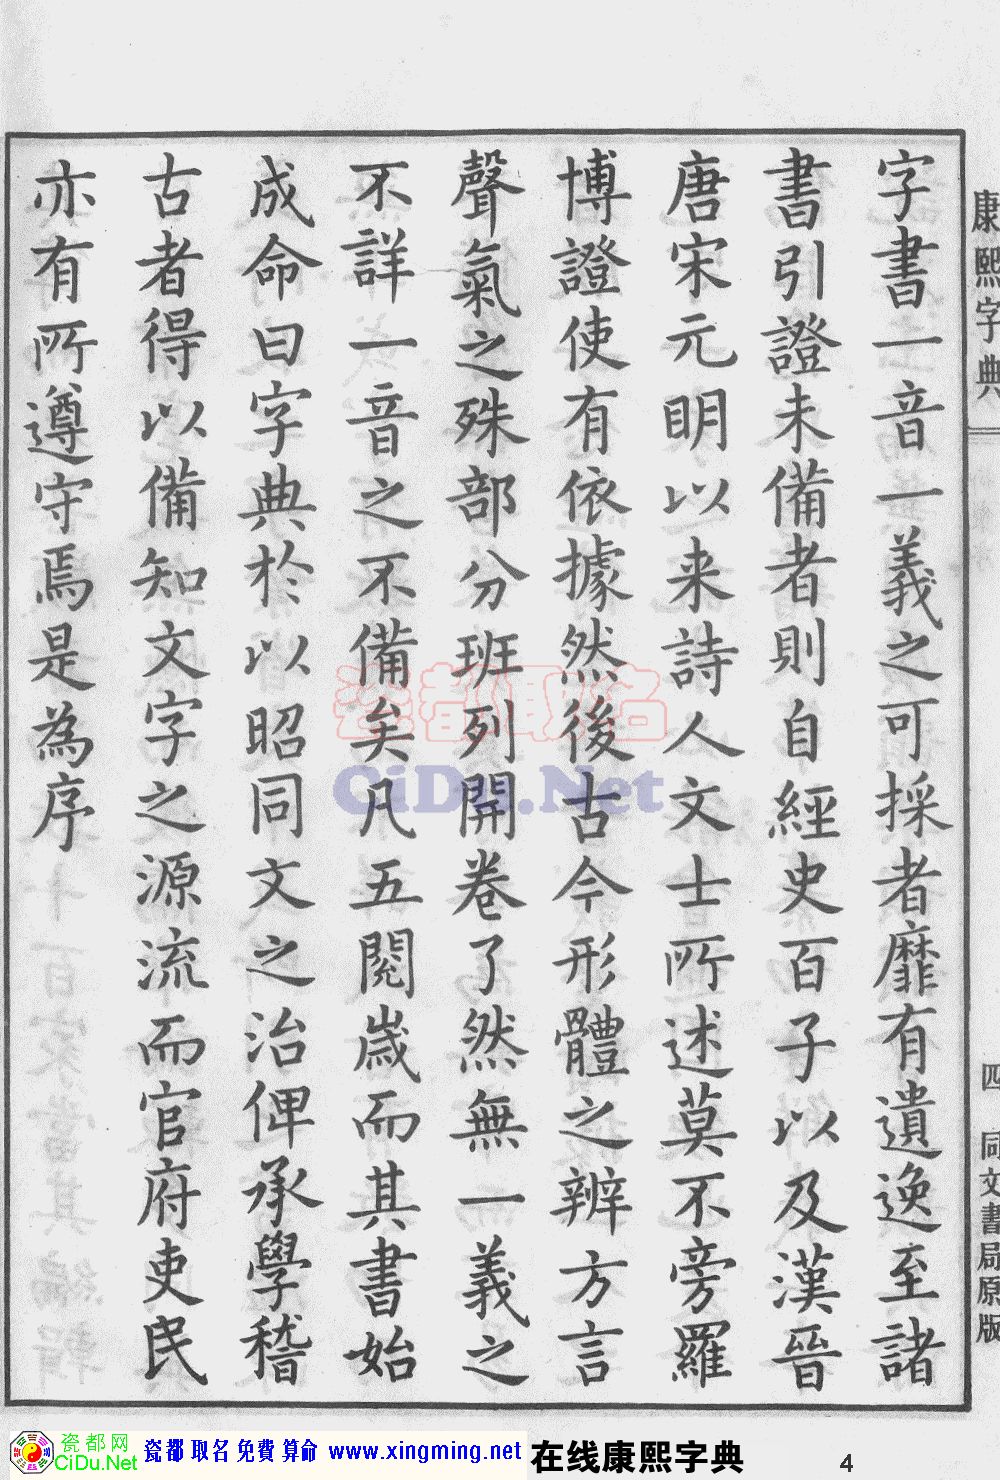 康熙字典
四
同文書局原版
字書一音一義之可採者靡有遺逸至諸
書引證未備者則自經史百子以及漢晉
唐宋元明以来詩人文士所述莫不旁羅
博證使有依據然後古今形體之辨方言
聲氣之殊部分班列開卷了然無一義之
不詳一音之不備矣凡五閱歲而其書始
成命曰字典於以昭同文之治俾承學稽
古者得以備知文字之源流而官府吏民
亦有所遵守焉是為序
瓷都取名
CiDu.Net
瓷都网
CiDu.Net
瓷都取名免費算命 www.xingming.net 在线康熙字典 4